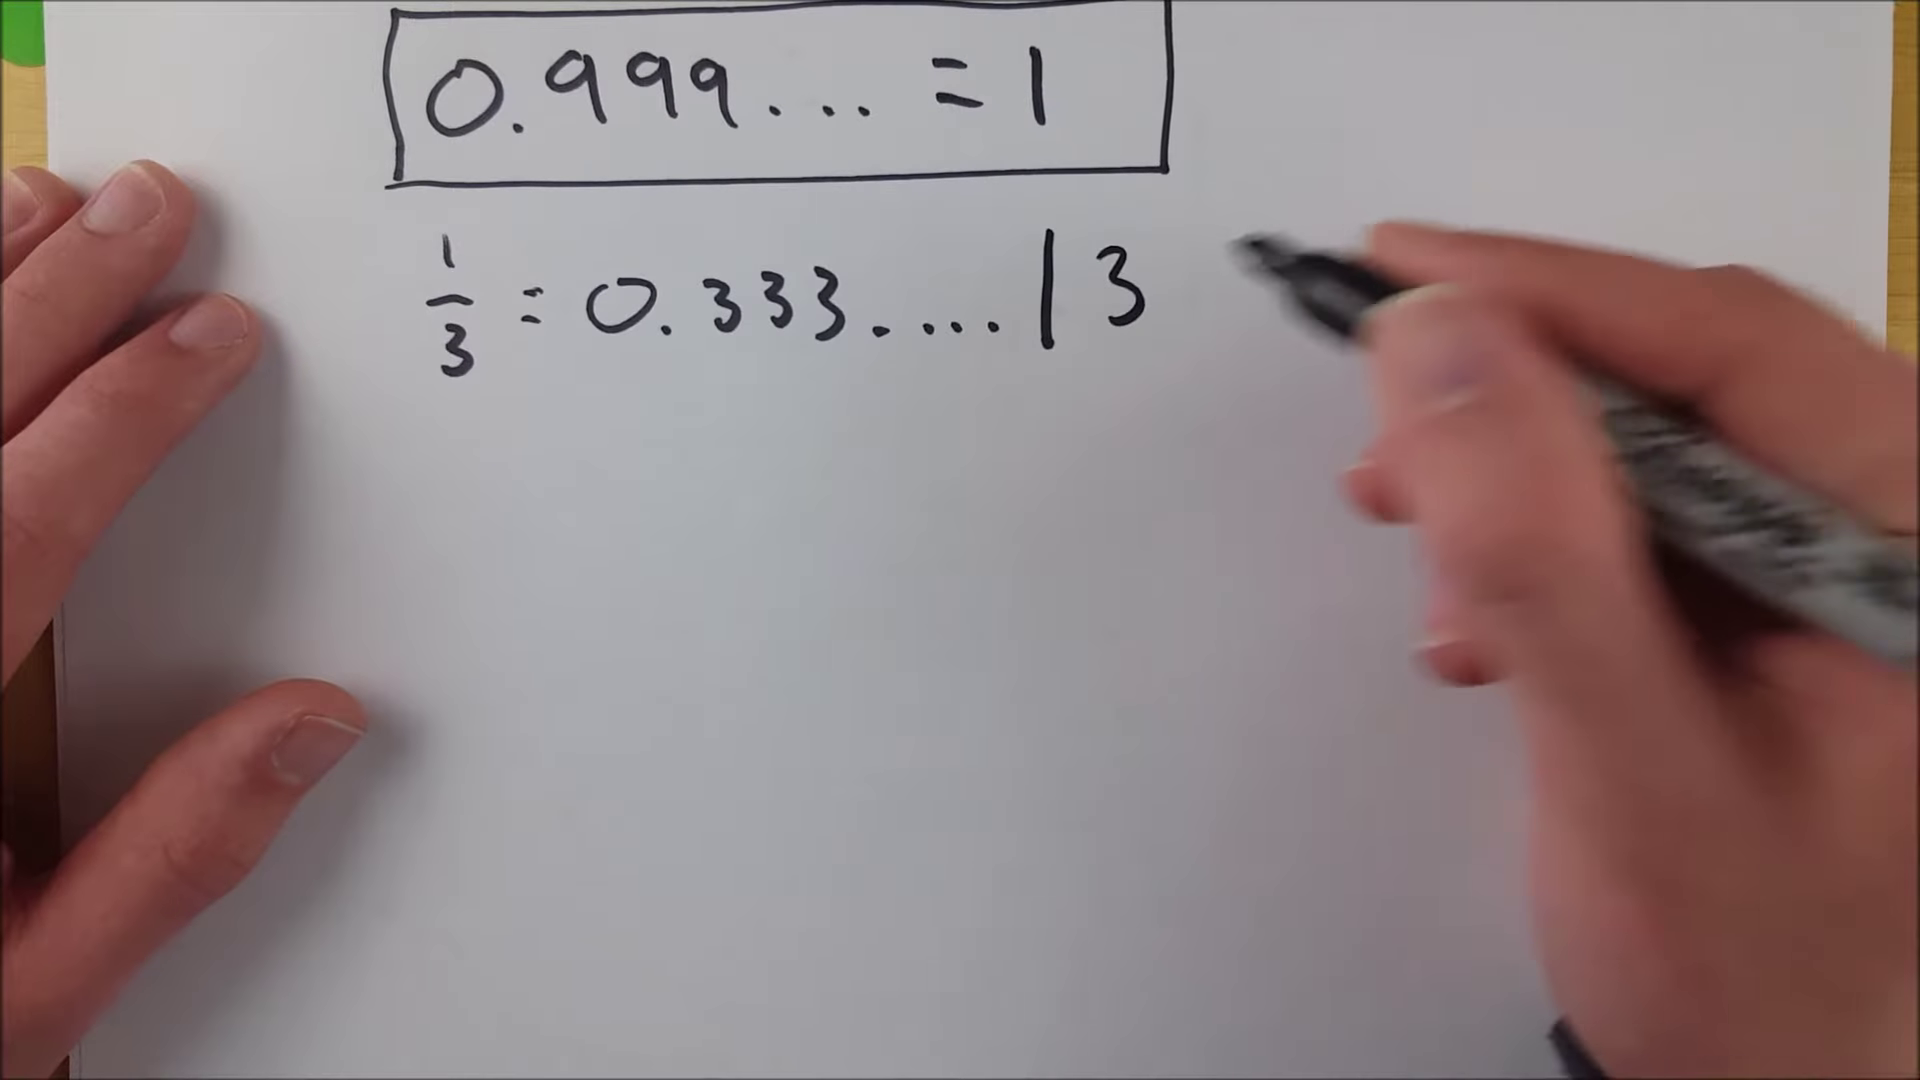 0.999... = 1
1/3 = 0.333.... | 3